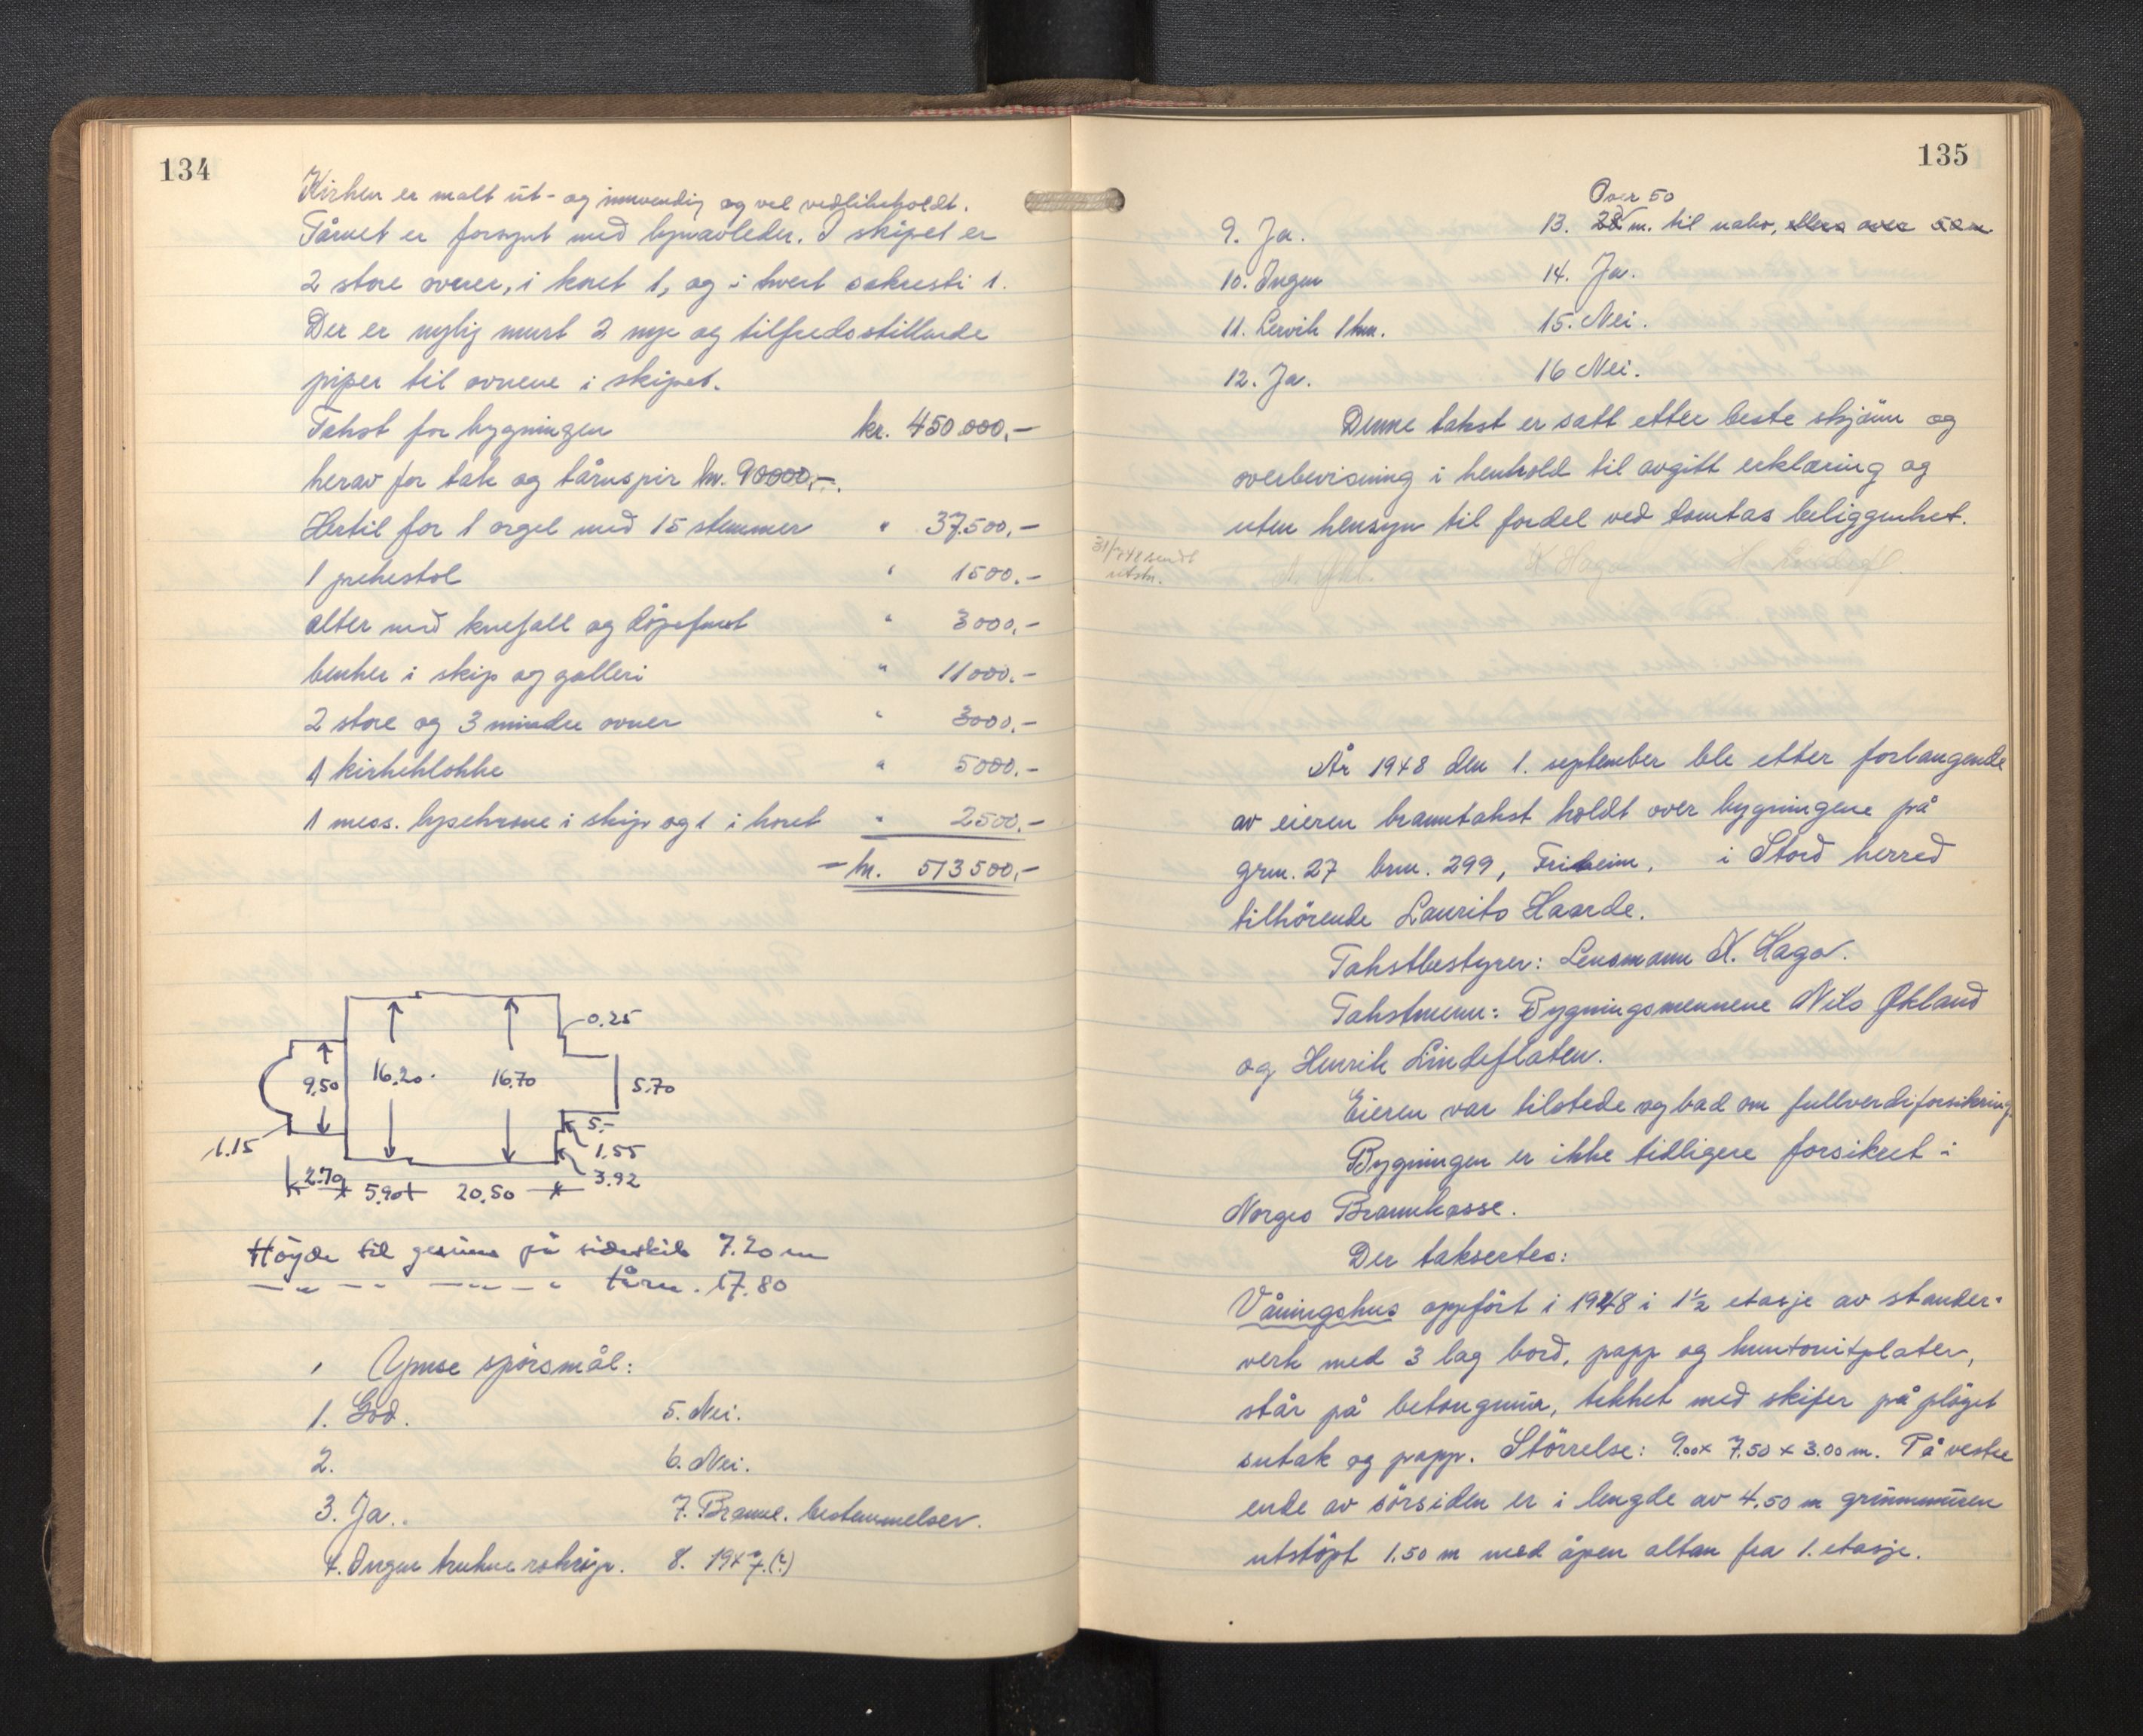 134
Kirken er malt ut- og innvendig og vel vedlikeholdt.
Tårnet er forsynt med lynavleder. I skipet er
2 store ovner, i koret 1, og i hvert sakresti 1.
Der er nylig murt 2 nye og tilfredsstillende
piper til ovnene i skipet.
Takst for bygningen kr. 450.000,-
herav for tak og tårnspir kr. 90000,-.
Hertil for 1 orgel med 15 stemmer " 37.500,-
1 prekestol " 1500.-
alter med knefall og döpefont " 3000,-
benker i skip og galleri " 11000.-
2 store og 3 mindre ovner " 3000,-
1 kirkeklokke " 5000.-
1 mess. lysekrone i skip og 1 i koret " 2500,-
- kr. 513500,-
0.25
9,50 16,20. 16,70 5,70
5,-
1.15 1,55
2.70 5,90 20,50 3.92
Höyde til gesims på sideskib 7.20 m
— „ — „ — „ — " tårn. 17.80
Gjense spörsmål:
1. God. 5. Nei.
2. 6. Nei.
3. Ja. 7. Brannl. bestemmelser.
4. Ingen trukne rökrör. 8. 1947.(?)
135
Over 50
9. Ja. 13. 28 m. til nabo, ellers over 50 m.
10. Ingen 14. Ja.
11. Lervik 1 km. 15. Nei.
12. Ja. 16 Nei.
Denne takst er satt etter beste skjönn og
overbevisning i henhold til avgitt erklæring og
uten hensyn til fordel ved tomtas beliggenhet.
sendt
utskr.
K Haga
År 1948 den 1. september ble etter forlangende
av eieren branntakst holdt over bygningene på
grn. 27 brn. 299, Friheim, i Stord herred
tilhörende Laurits Haarde.
Takstbestyrer: Lensmann K. Haga.
Takstmenn: Bygningsmennene Nils Økland
og Henrik Lindeflaten.
Eieren var tilstede og bad om fullverdiforsikring.
Bygningen er ikke tidligere forsikret i
Norges Brannkasse.
Der taksertes:
Våningshus oppfört i 1948 i 1½ etasje av stender-
verk med 3 lag bord, papp og huntonitplater,
står på betongmur, tekket med skifer på plöget
sutak og papp. Störrelse: 9.00 x 7,50 x 3.00 m. På vestre
ende av sörsiden er i lengde av 4,50 m grunnmuren
utstöpt 1.50 m med åpen altan fra 1. etasje.